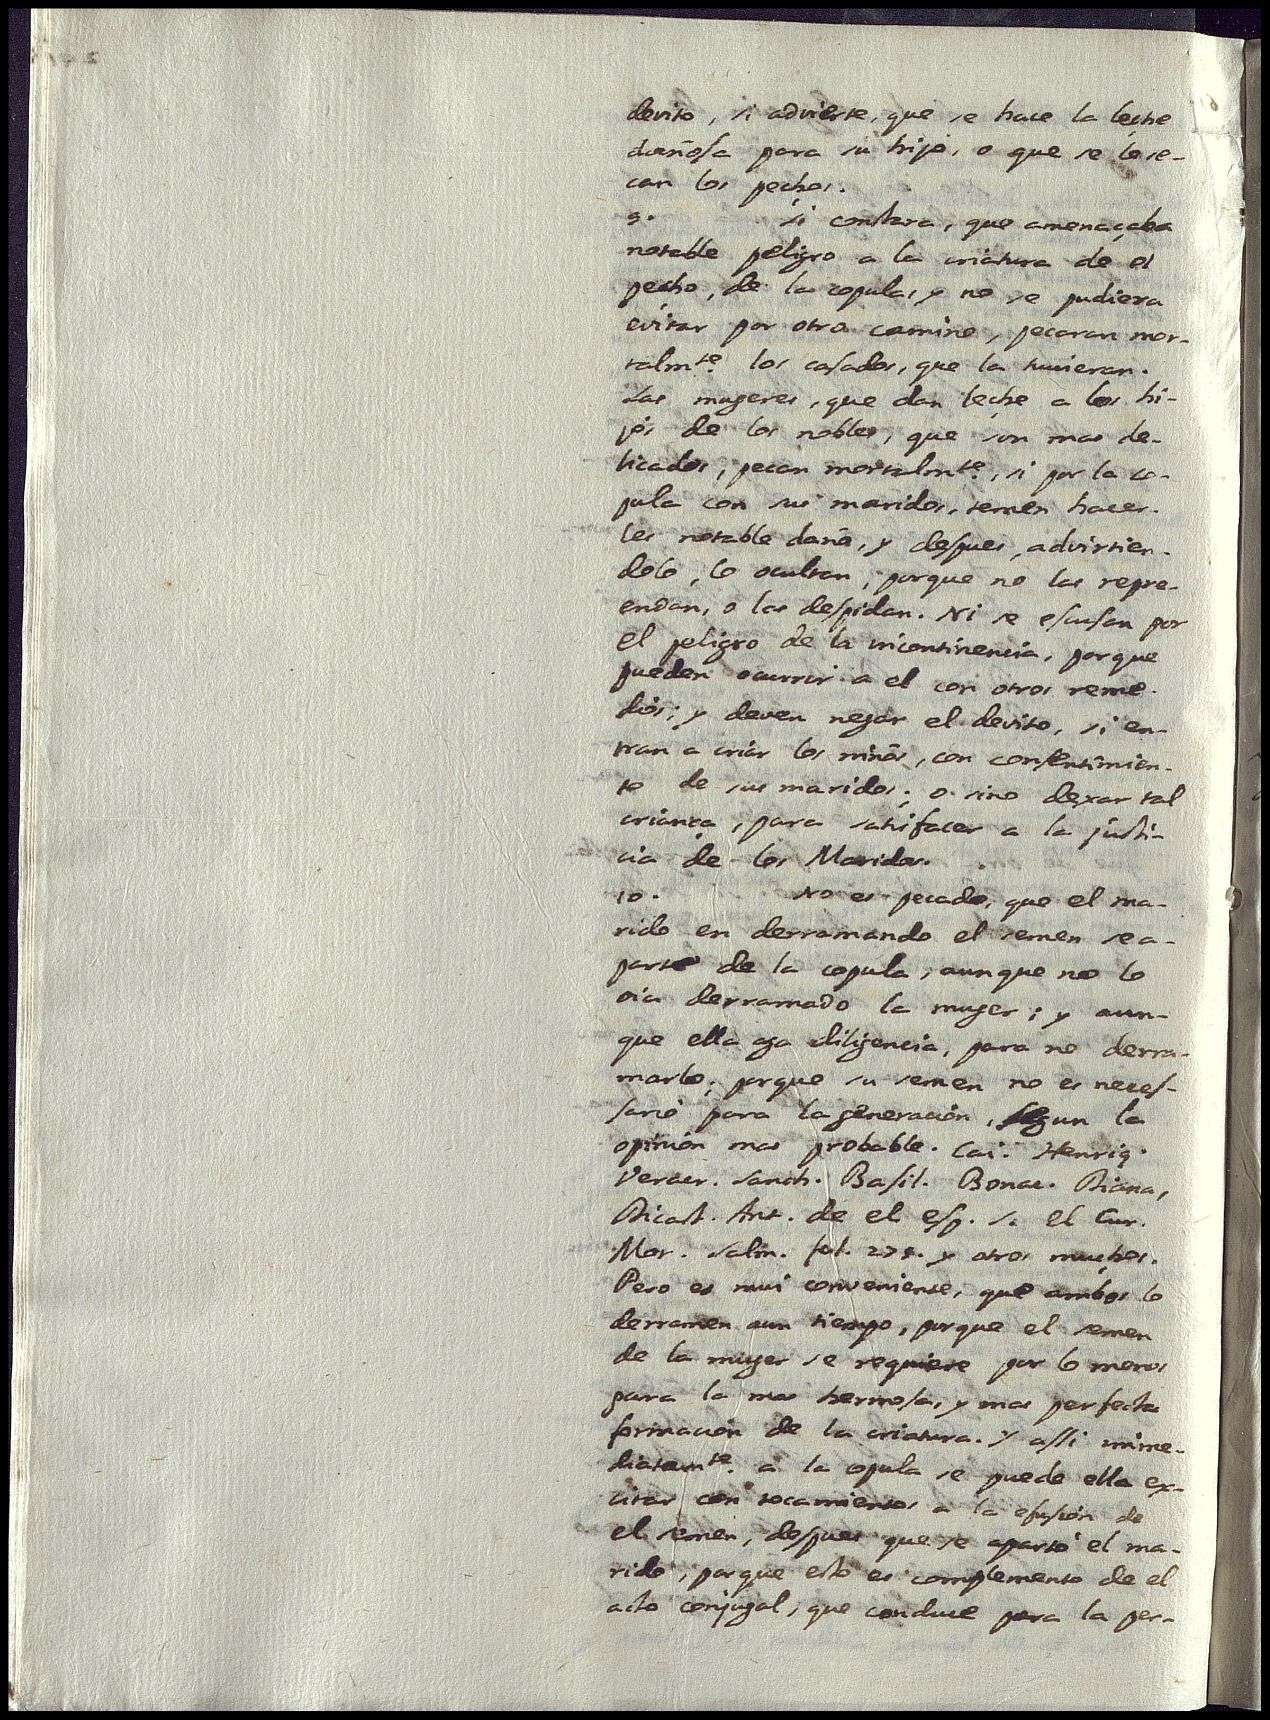 devito, si advierte, que se hace la leche
dañosa para su hijo, o que se le se-
can los pechos.
9. Si constara, que amenaçaba
notable peligro a la criatura de el
pecho, de la copula, y no se pudiera
evitar por otro camino, pecaran mor-
talmte. los casados, que la tuvieran.
Las mugeres, que dan leche a los hi-
jos de los nobles, que son mas de-
licados, pecan mortalmte., si por la co-
pula con sus maridos, temen hacer-
les notable daño, y despues, advirtien-
dolo, lo ocultan, porque no las repre-
endan, o las despidan. Ni se escusan por
el peligro de la incontinencia, porque
pueden ocurrir a el con otros reme-
dios; y deven negar el devito, si en-
tran a criar los niños, con consentimien-
to de sus maridos; o sino dexar tal
crianza, para satisfacer a la justi-
cia de los Maridos.
10. No es pecado, que el ma-
rido en derramando el semen se a-
parte de la copula, aunque no lo
aia derramado la muger; y aun-
que ella aga diligencia, para no derra-
marlo; porque su semen no es neces-
sario para la generación, segun la
opinión mas probable. Cai. Henriq.
Veracr. Sanch. Basil. Bonac. Diana,
Dicast. Ant. de el esp. S. el Cur.
Mor. Salm. fol. y otros muchos.
Pero es mui conveniente, que ambos lo
derramen aun tiempo, porque el semen
de la muger se requiere por lo menos
para la mas hermosa, y mas perfecta
formación de la criatura. Y assi imme-
diatamte. a la copula se puede ella ex-
citar con tocamientos a la efusión de
el semen, despues que se apartó el ma-
rido, porque esto es complemento de el
acto conjugal, que conduce para la per-